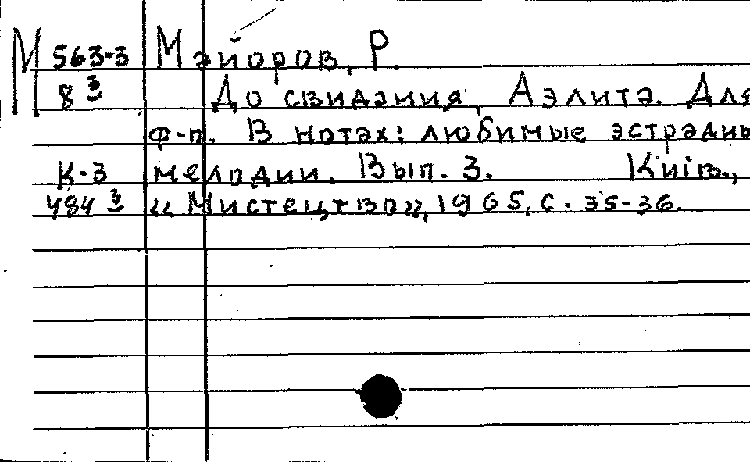 М 563-3 Майоров, Р.
8 з До свидания, Аэлита. Для
ф-п. В нотах: любимые эстрадны
К-3 мелодии. Вып. 3. Київ.,
484 з «Мистецтво», 1965, с. 35-36.